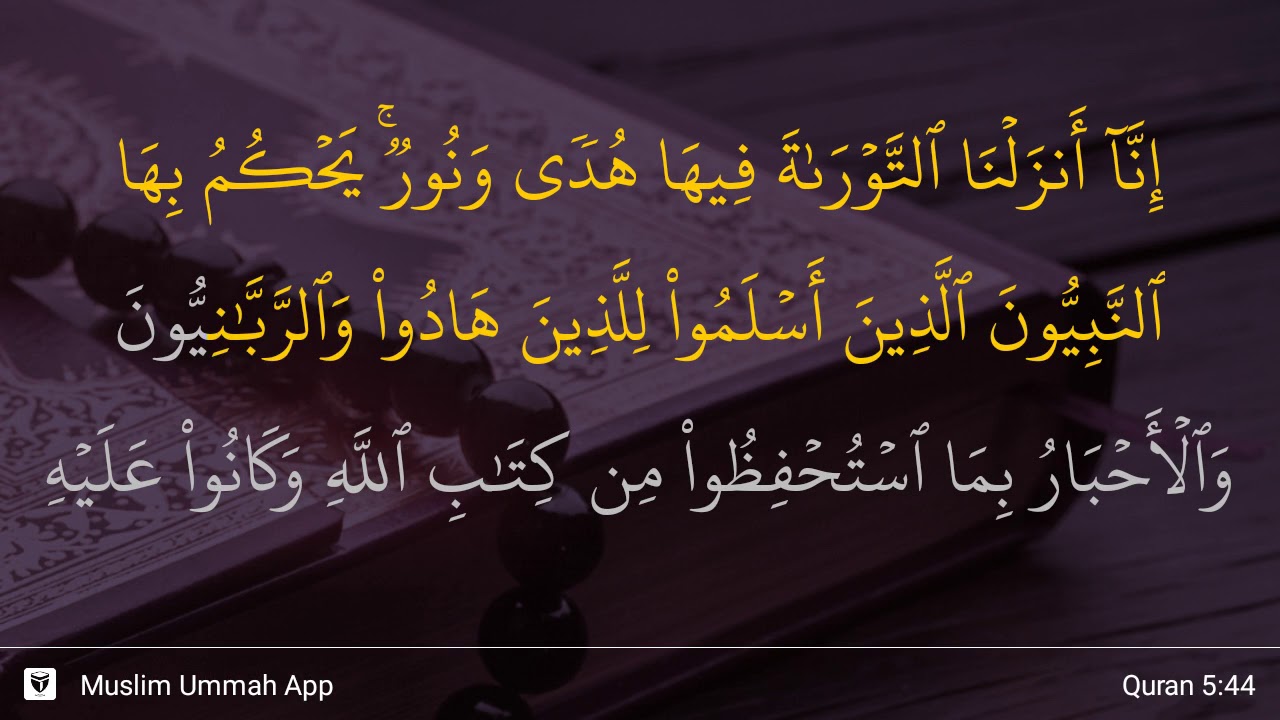 إِنَّآ أَنزَلْنَا ٱلتَّوْرَىٰةَ فِيهَا هُدًى وَنُورٌ ۚ يَحْكُمُ بِهَا
ٱلنَّبِيُّونَ ٱلَّذِينَ أَسْلَمُوا۟ لِلَّذِينَ هَادُوا۟ وَٱلرَّبَّـٰنِيُّونَ
وَٱلْأَحْبَارُ بِمَا ٱسْتُحْفِظُوا۟ مِن كِتَـٰبِ ٱللَّهِ وَكَانُوا۟ عَلَيْهِ
Muslim Ummah App
Quran 5:44